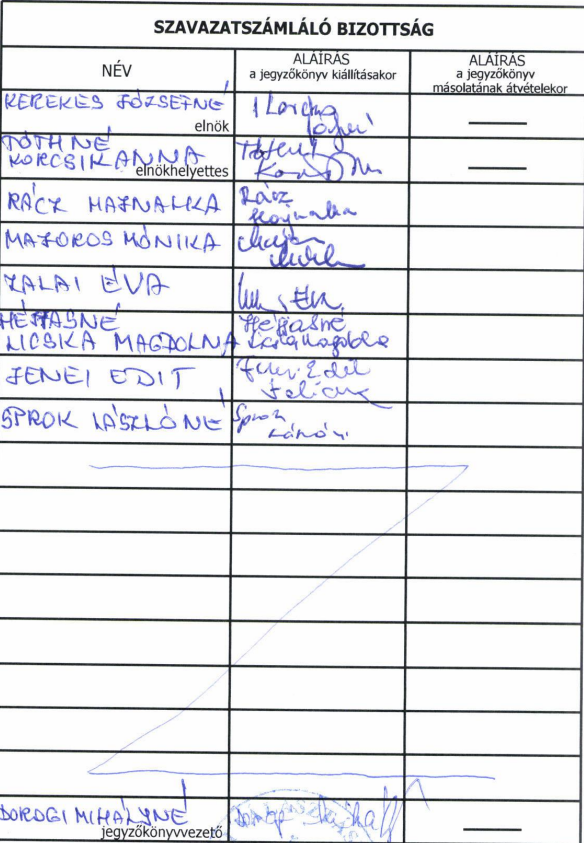 SZAVAZATSZÁMLÁLÓ BIZOTTSÁG
NÉV
ALÁÍRÁS
a jegyzőkönyv kiállításakor
ALÁÍRÁS
a jegyzőkönyv
másolatának átvételekor
KEREKES JÓZSEFNÉ
elnök
TÓTHNÉ
KORCSIK ANNA
elnökhelyettes
RÁCZ HAJNALKA
Rácz
Hajnalka
MAJOROS MÓNIKA
ZALAI ÉVA
HÉJJASNÉ
LICSKA MAGDOLNA
Héjjasné
JENEI EDIT
Jenei Edit
SPROK LÁSZLÓNÉ
Sprok
DOROGI MIHÁLYNÉ
jegyzőkönyvvezető